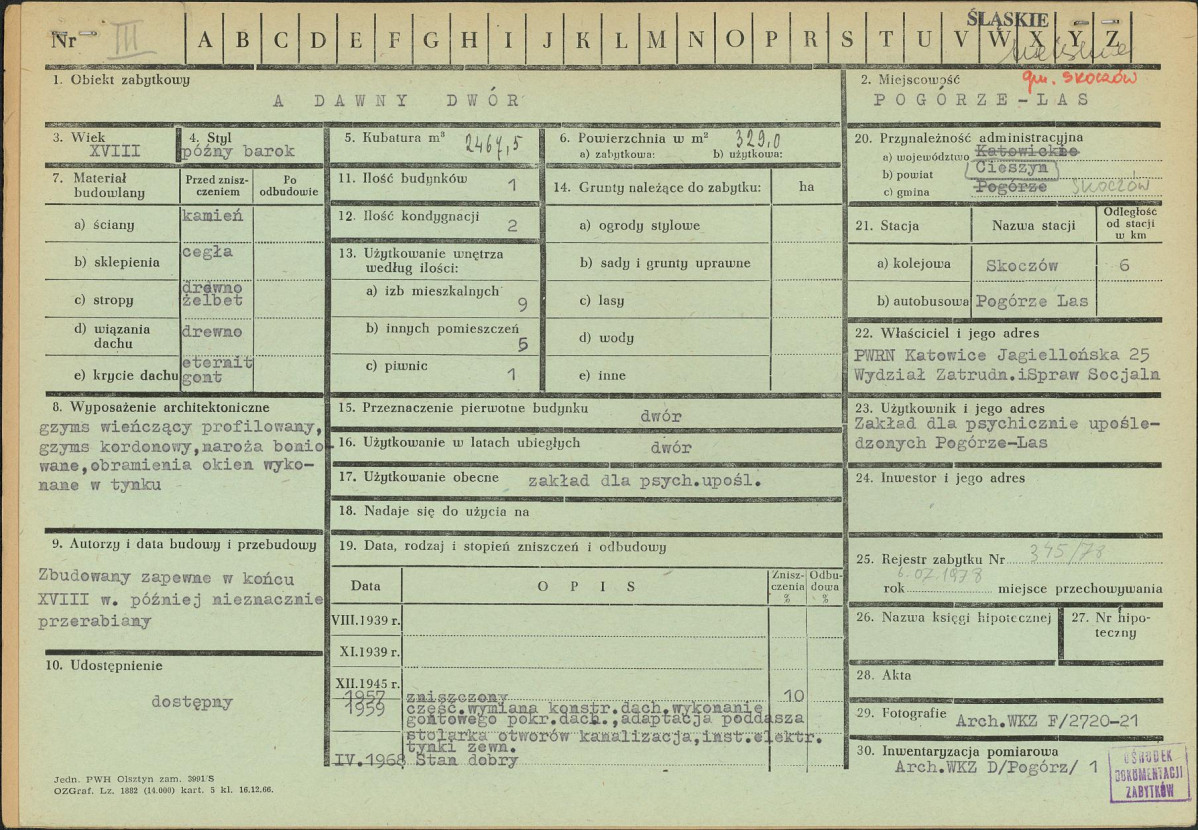 Nr III A B C D E F G H I J K L M N O P R S T U V W X Y Z
ŚLĄSKIE
1. Obiekt zabytkowy
A DAWNY DWÓR
2. Miejscowość
gm. SKOCZÓW
POGÓRZE-LAS
3. Wiek
XVIII
4. Styl
późny barok
5. Kubatura m³ 2467,5
6. Powierzchnia w m² 329,0
a) zabytkowa: b) użytkowa:
20. Przynależność administracyjna
a) województwo Katowickie
b) powiat Cieszyn
c) gmina Pogórze SKOCZÓW
7. Materiał budowlany
Przed zniszczeniem
Po odbudowie
a) ściany kamień
b) sklepienia cegła
c) stropy drewno
żelbet
d) wiązania dachu drewno
e) krycie dachu eternit
gont
11. Ilość budynków 1
12. Ilość kondygnacji 2
13. Użytkowanie wnętrza
według ilości:
a) izb mieszkalnych 9
b) innych pomieszczeń 5
c) piwnic 1
14. Grunty należące do zabytku: ha
a) ogrody stylowe
b) sady i grunty uprawne
c) lasy
d) wody
e) inne
21. Stacja Nazwa stacji Odległość
od stacji
w km
a) kolejowa Skoczów 6
b) autobusowa Pogórze Las
22. Właściciel i jego adres
PWRN Katowice Jagiellońska 25
Wydział Zatrudn.iSpraw Socjaln
8. Wyposażenie architektoniczne
gzyms wieńczący profilowany,
gzyms kordonowy,naroża bonio-
wane,obramienia okien wyko-
nane w tynku
15. Przeznaczenie pierwotne budynku dwór
16. Użytkowanie w latach ubiegłych dwór
17. Użytkowanie obecne zakład dla psych.upośl.
18. Nadaje się do użycia na
23. Użytkownik i jego adres
Zakład dla psychicznie upośle-
dzonych Pogórze-Las
24. Inwestor i jego adres
9. Autorzy i data budowy i przebudowy
Zbudowany zapewne w końcu
XVIII w. później nieznacznie
przerabiany
10. Udostępnienie
dostępny
19. Data, rodzaj i stopień zniszczeń i odbudowy
Data OPIS Zniszczenia % Odbudowa %
VIII.1939 r.
XI.1939 r.
XII.1945 r.
1957 zniszczony 10
1959 częsć.wymiana konstr.dach.wykonanie
gontowego pokr.dach.,adaptacja poddasza
stolarka otworów kanalizacja,inst.elektr.
tynki zewn.
IV.1968 Stan dobry
25. Rejestr zabytku Nr 345/78
rok 6.07.1978 miejsce przechowywania
26. Nazwa księgi hipotecznej
27. Nr hipo-
teczny
28. Akta
29. Fotografie Arch.WKZ F/2720-21
30. Inwentaryzacja pomiarowa
Arch.WKZ D/Pogórz/ 1
OŚRODEK
DOKUMENTACJI
ZABYTKÓW
Jedn. PWH Olsztyn zam. 3991/S
OZGraf. Lz. 1882 (14.000) kart. 5 kl. 16.12.66.